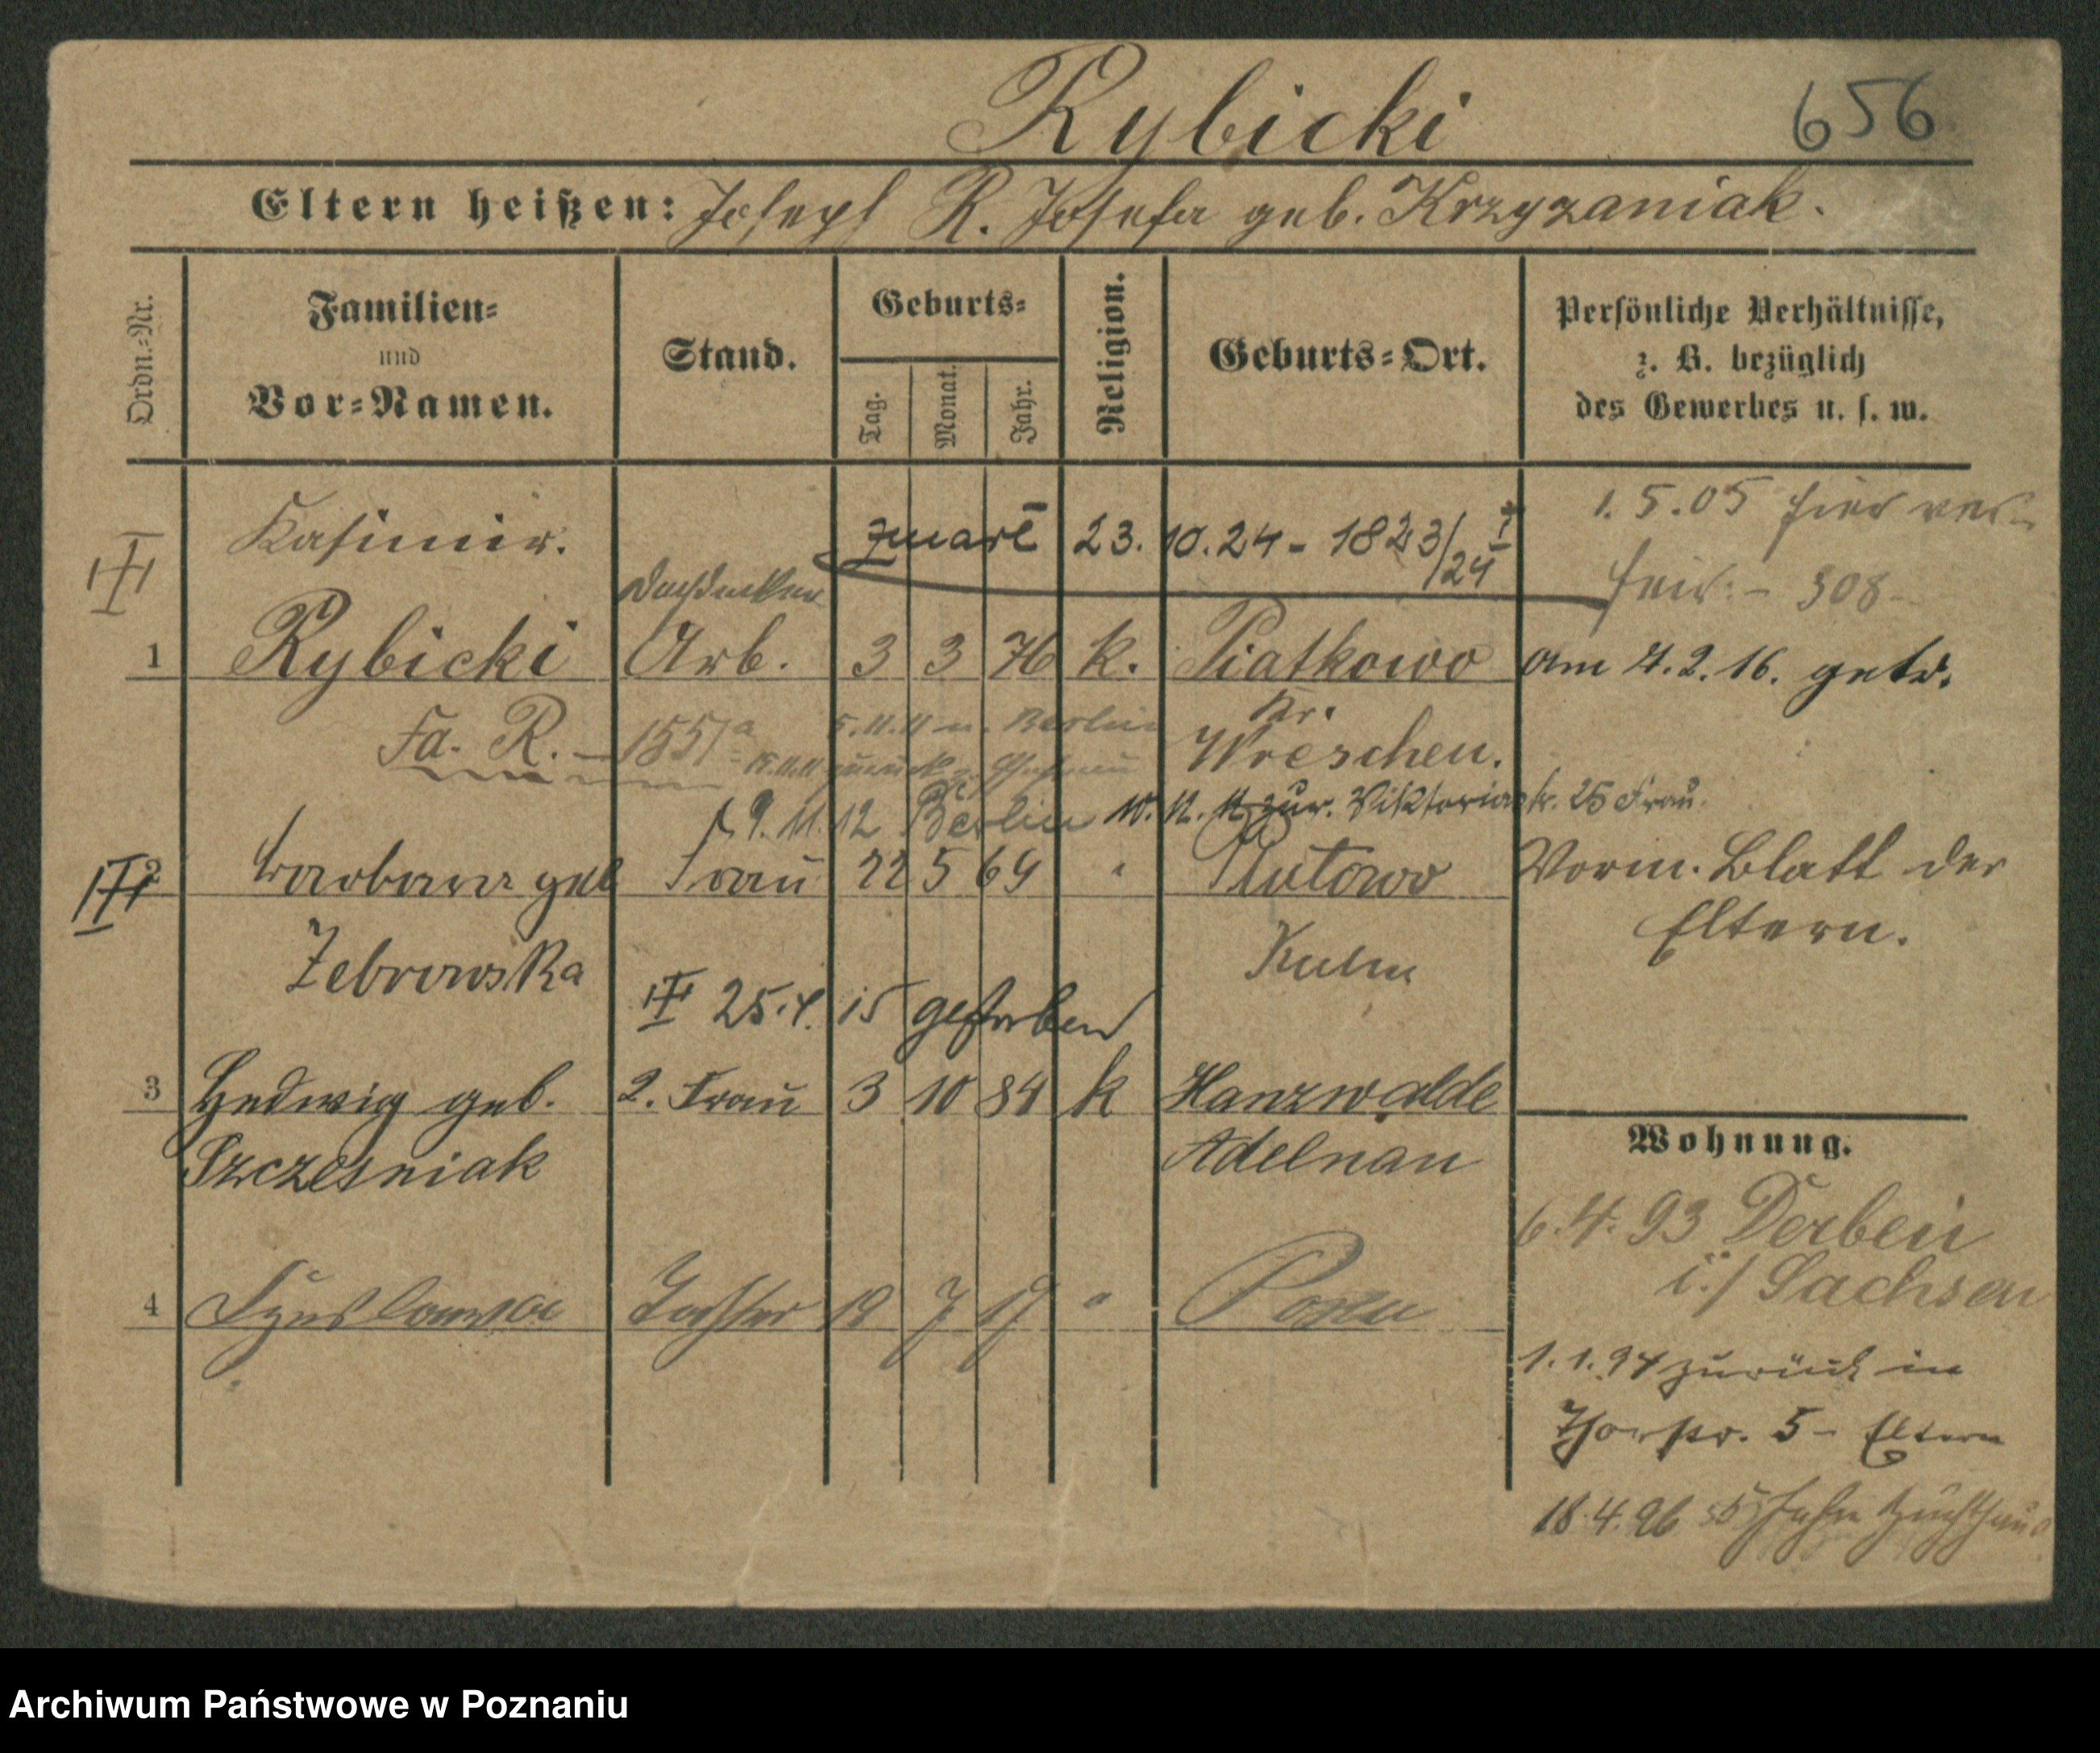 Rybicki 656
Eltern heißen: Joseph R. Josefa geb. Krzyzaniak.
Ordn.-Nr.
Familien-
und
Vor-Namen.
Stand.
Geburts-
Tag.
Monat.
Jahr.
Religion.
Geburts-Ort.
Persönliche Verhältnisse,
z. B. bezüglich
des Gewerbes u. s. w.
Kasimir. zmarł 23. 10. 24 - 1823/24 I
1. 5. 05 hier
308
Dachdecker
1 Rybicki Arb. 3 3 76 k. Piatkowo am 4. 2. 16. getr.
Fa. R. - 1557a 5. 11. 11 n. Berlin Kr.
zurück Wreschen.
9. 11. 12 Berlin 10. 12. 12 zur. Viktoriastr. 25 Frau.
2 Barbara geb Frau 22 5 69 " Plutowo Vorm. Blatt der
Eltern.
Zebrowska Kulm
25. 4. 15 gestorben
3 Hedwig geb. 2. Frau 3 10 84 k Hanzwalde
Szczesniak Adelnau
Wohnung.
6. 4. 93 Derben
i./Sachsen
4 Tochter 19 7 17 " Posen
1. 1. 94 zurück in
Thorstr. 5 - Eltern
18. 4. 96 Jahre Zuchthaus
Archiwum Państwowe w Poznaniu